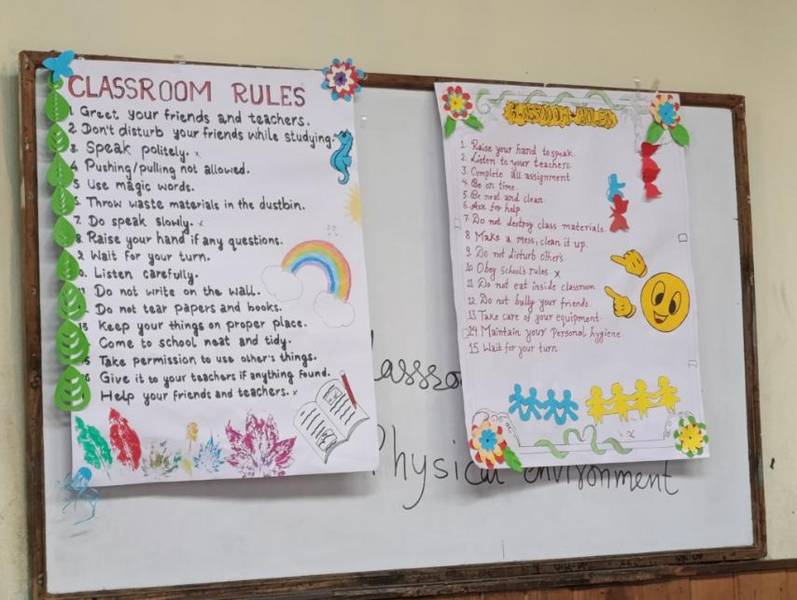 CLASSROOM RULES
Greet your friends and teachers.
2. Don't disturb your friends while studying.
3. Speak politely. x
4 Pushing/pulling not allowed.
5 Use magic words.
6 Throw waste materials in the dustbin.
7. Do speak slowly.
8. Raise your hand if any questions.
9. Wait for your turn.
Listen carefully.
Do not write on the wall.
Do not tear papers and books.
Keep your things on proper place.
Come to school neat and tidy.
Take permission to use other's things.
Give it to your teachers if anything found.
Help your friends and teachers. x
CLASSROOM RULES
1. Raise your hand to speak.
2. Listen to your teachers.
3. Complete all assignment
4. Be on time.
5. Be neat and clean.
6. Ask for help.
7. Do not destroy class materials.
8 Make a mess, clean it up.
9. Do not disturb others.
10 Obey school's rules x
11 Do not eat inside classroom
12. Do not bully your friends.
13 Take care of your equipment.
14 Maintain your personal hygiene.
15 Wait for your turn
Physical environment